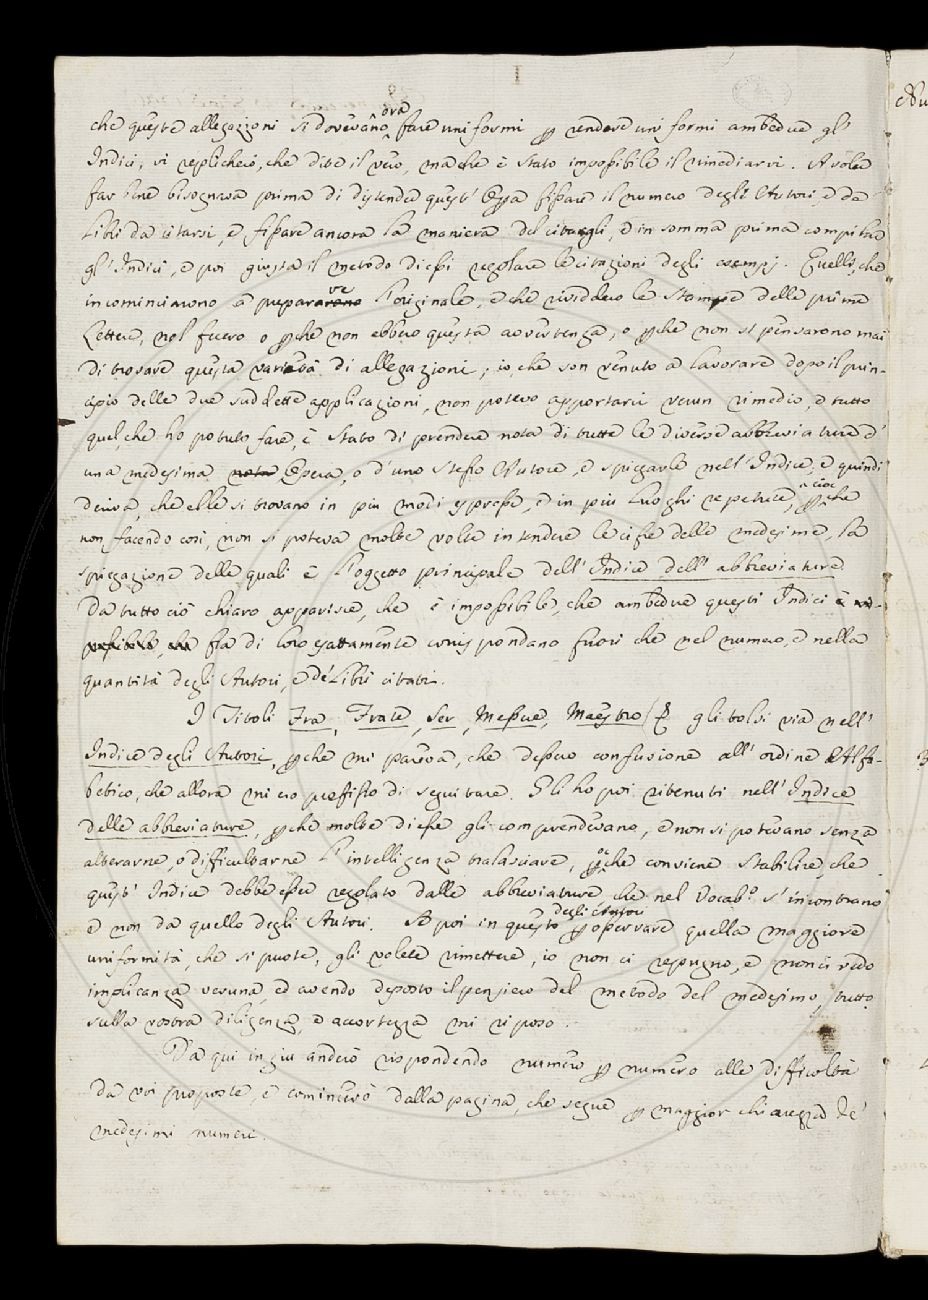 I
drà
che queste allegazioni si dovevano, fare uniformi p rendere uniformi ambedue gl'
Indici, vi replicherò, che dite il vero, ma che è stato impossibile il rimediarvi. A voler
far bene bisognava prima di distender quest' Opera fissare il numero degli Autori, e de
Libri da citarsi, e fissare ancora la maniera del citargli, e in somma prima compilar
gl' Indici, e poi giusta il metodo di essi regolare le citazioni degli esempj. Quelli, che
ve
incominciarono a preparare l'originale, e che rividdero le Stampe delle prime
Lettere, nol fecero o pchè non ebbero questa avvertenza, o pchè non si pensarono mai
di trovare questa varietà di allegazioni; io, che son venuto a lavorare dopo il prin-
cipio delle due suddette applicazioni, non potevo apportarci verun rimedio, e tutto
quel, che ho potuto fare, è stato di prender nota di tutte le diverse abbreviature d'
una medesima nota Opera, o d'uno stesso Autore, e spiegarle nell' Indice, e quindi
deriva, che elle si trovano in più modi espresse, e in più luoghi repetute, pchè
cioè
non facendo così, non si poteva molte volte intendere le cifre delle medesime, la
spiegazione delle quali è l'oggetto principale dell' Indice dell' abbreviature
Da tutto ciò chiaro apparisce, che è impossibile, che ambedue questi Indici è im-
possibile, che fra di loro esattamente corrispondano fuori che nel numero, e nella
quantità degli Autori, e de' Libri citati.
I Titoli Fra, Frate, Ser, Messer, Maestro gli tolsi via nell'
Indice degli Autori, pchè mi pareva, che dessero confusione all' ordine Alfa-
betico, che allora mi ero prefisso di seguitare. Gli ho poi ritenuti nell' Indice
delle abbreviature, pchè molte di esse gli comprendevano, e non si potevano senza
alterarne, o difficultarne l'intelligenza tralasciare, pchè conviene stabilire, che
quest' Indice debbe esser regolato dalle abbreviature che nel Vocabo. s' incontrano
e non da quello degli Autori. Se poi in questo p osservare quella maggiore
degli Autori
uniformità, che si puote, gli volete rimettere, io non ci repugno, e non ci vedo
implicanza veruna, ed avendo deposto il pensiero del metodo del medesimo, tutto
sulla vostra diligenza, e accortezza mi riposo.
Da qui in giù anderò rispondendo numero p numero alle difficoltà
da voi proposte, e comincerò dalla pagina, che segue p maggior chiarezza de'
medesimi numeri.